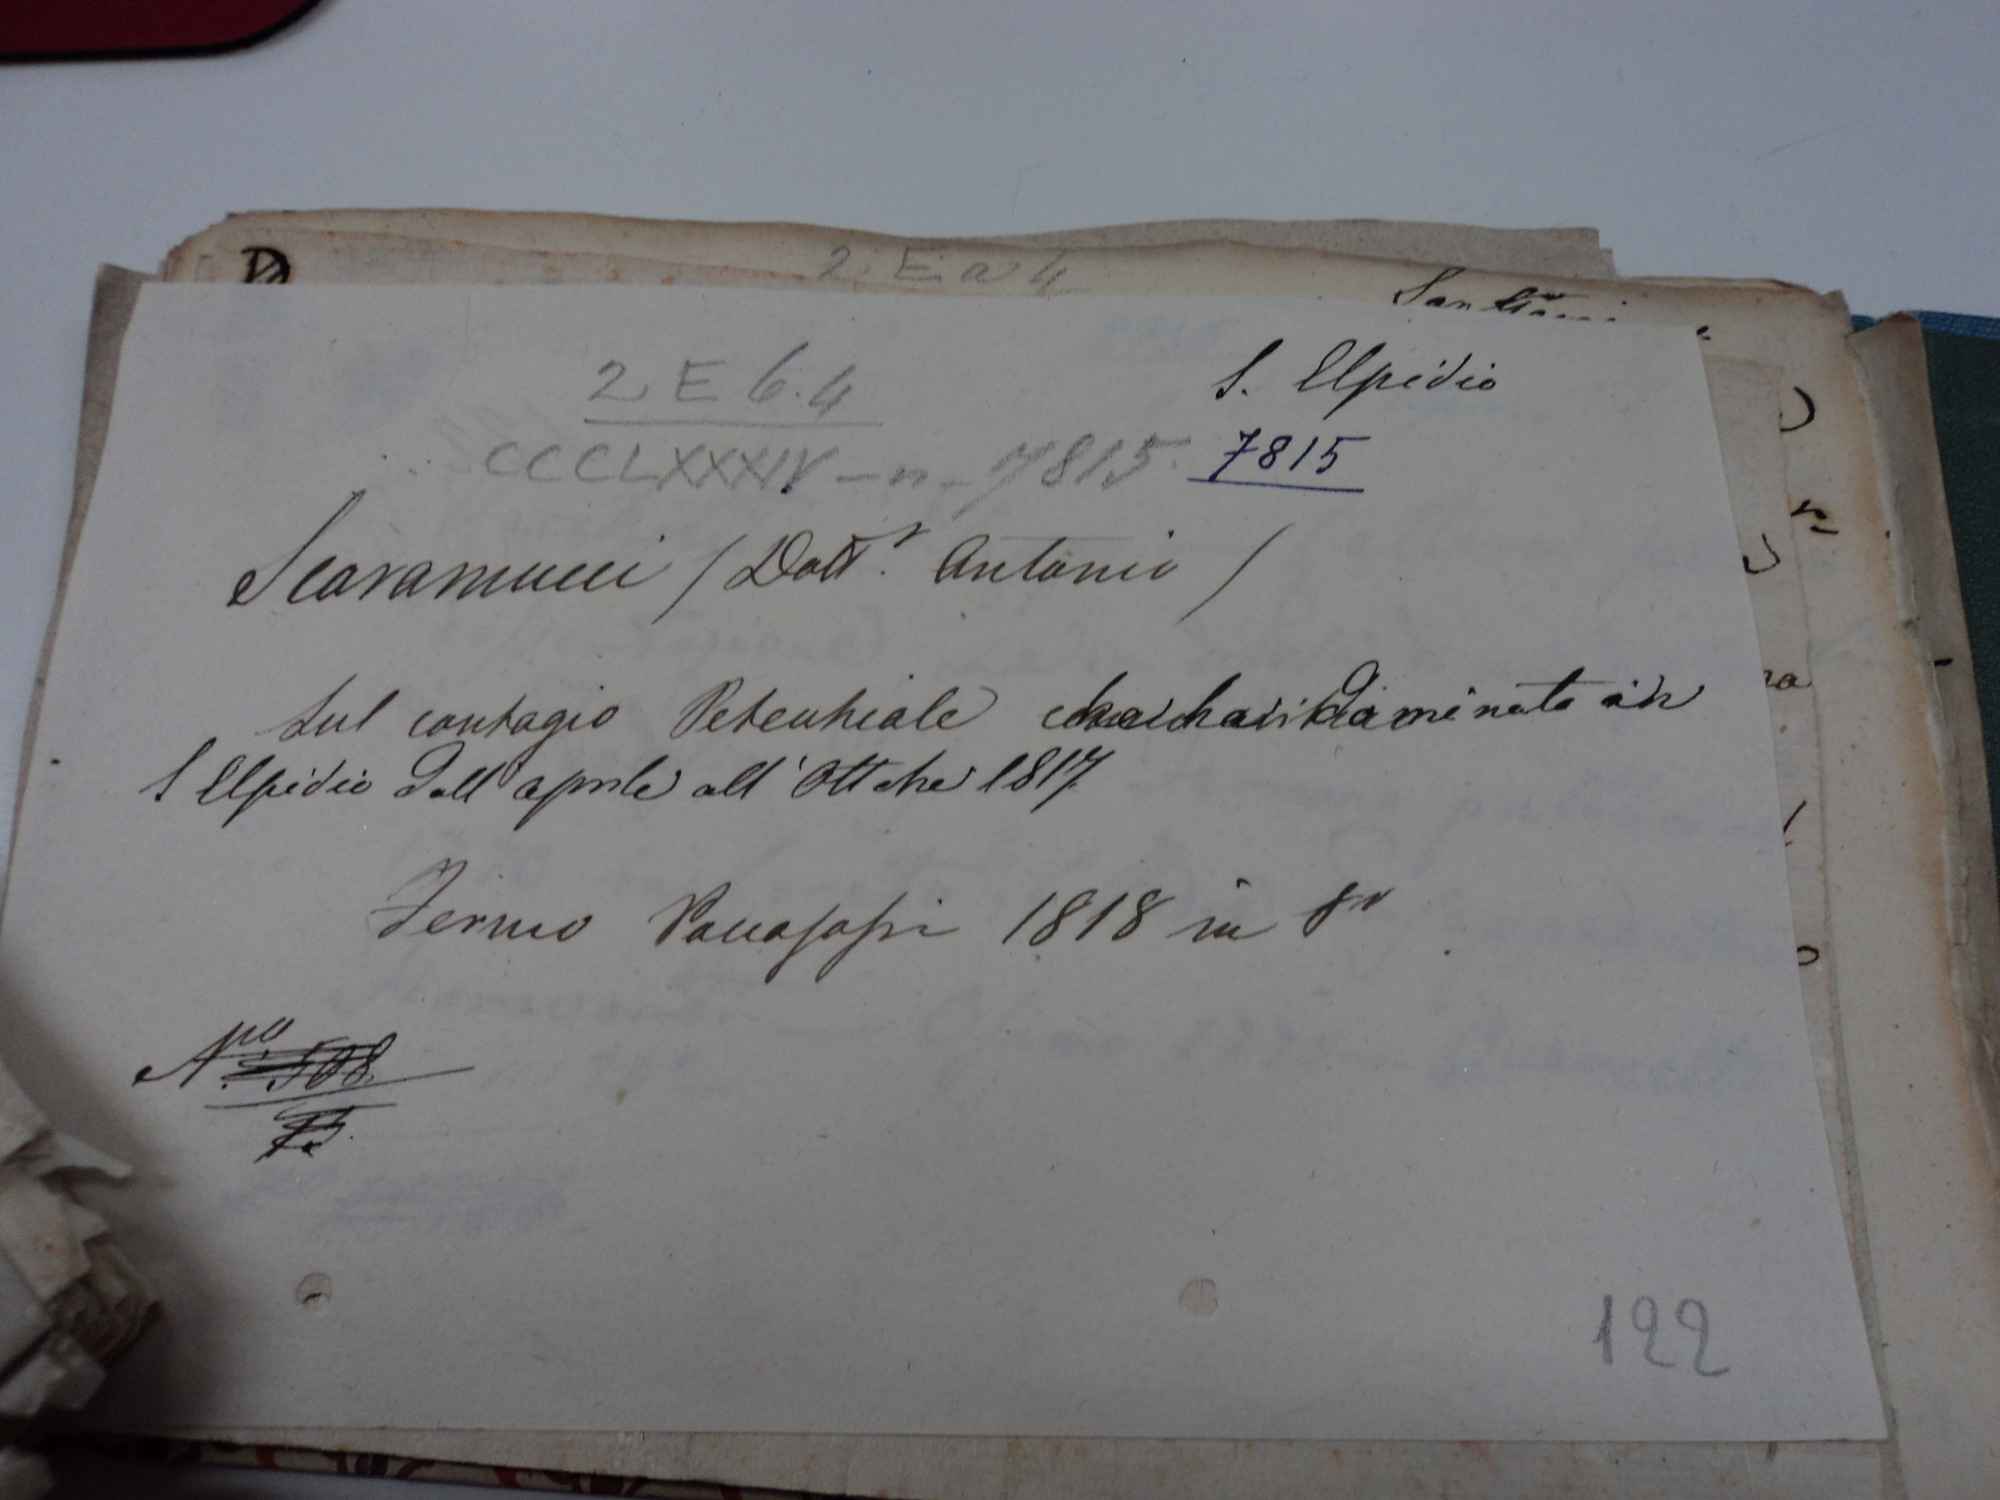 2 E a 4
2 E 6.4
S. Elpidio
CCCLXXXIV - n. 7815
7815
Scaramucci (Dott.r Antonio)
Sul contagio Petecchiale che ha dominato in
S Elpidio dall'aprile all'Ottobre 1817
Fermo Paccasassi 1818 in 8º
508
122